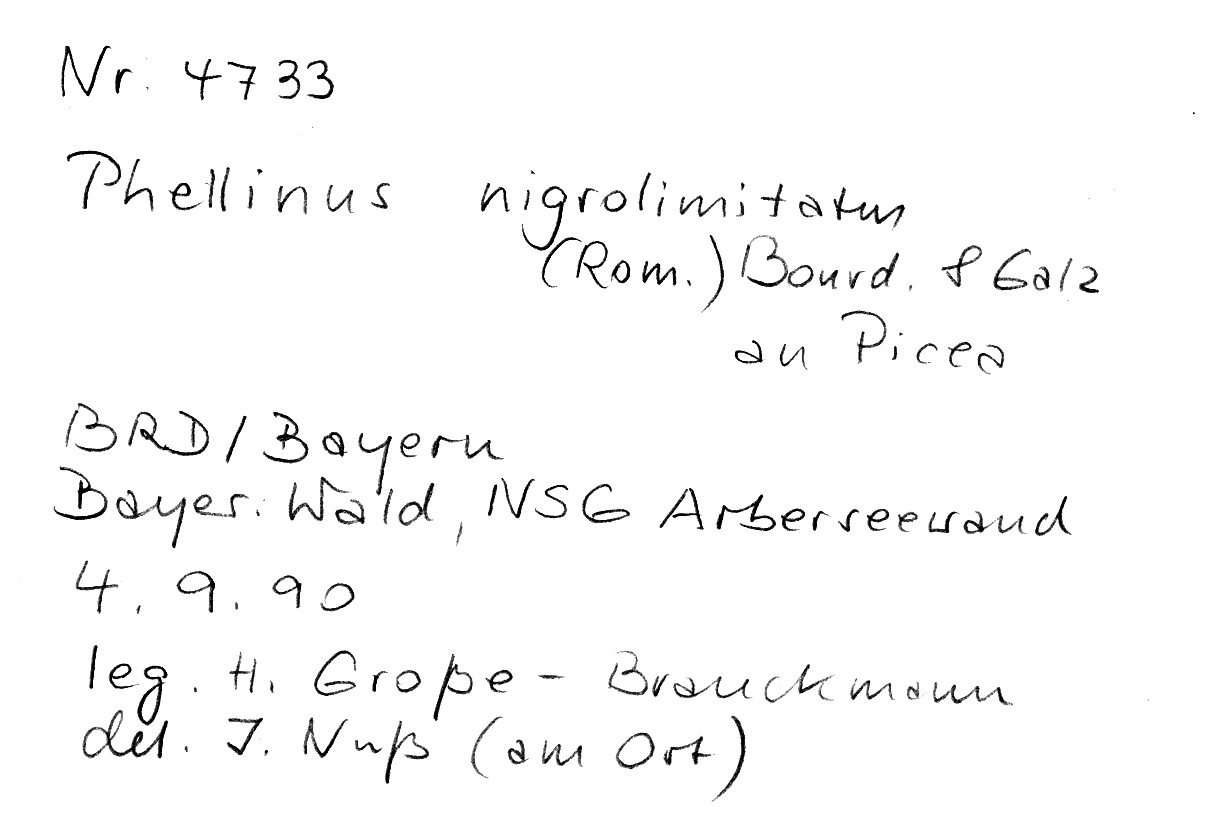 Nr. 4733
Phellinus nigrolimitatus
(Rom.) Bourd. & Galz
an Picea
BRD/Bayern
Bayer. Wald, NSG Arberseewand
4. 9. 90
leg. H. Große-Brauckmann
det. I. Nuß (am Ort)